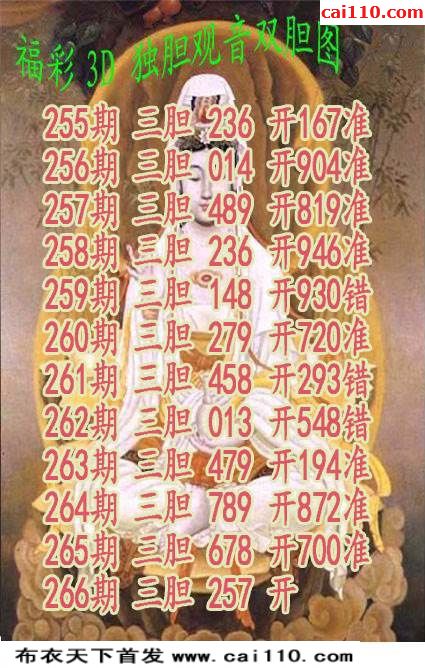 cai110.com
福彩3D 独胆观音双胆图
255期 三胆 236 开167准
256期 三胆 014 开904准
257期 三胆 489 开819准
258期 三胆 236 开946准
259期 三胆 148 开930错
260期 三胆 279 开720准
261期 三胆 458 开293错
262期 三胆 013 开548错
263期 三胆 479 开194准
264期 三胆 789 开872准
265期 三胆 678 开700准
266期 三胆 257 开
布衣天下首发 www.cai110.com